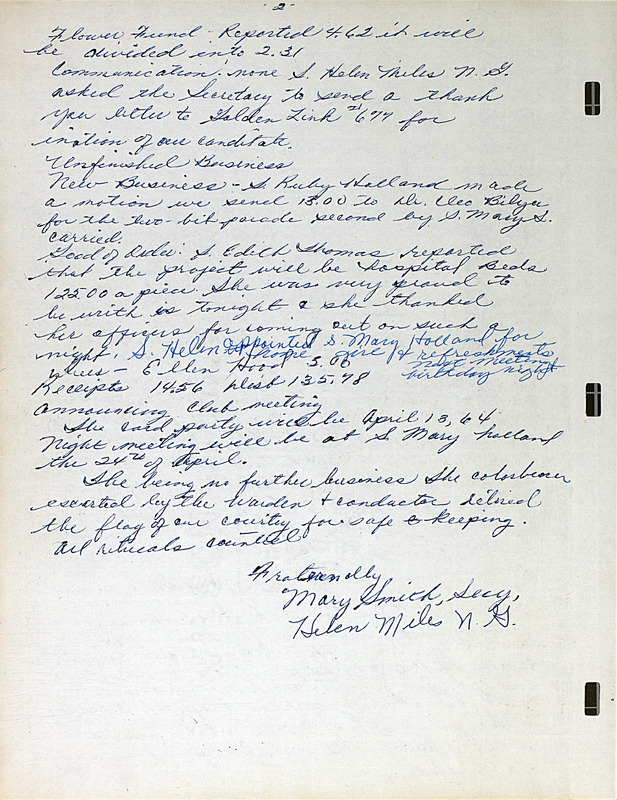 2
Flower Fund - Reported 4.62 it will
be divided into 2.31
Communication: none S. Helen Miles N. G.
asked the Secretary to send a thank
you letter to Golden Link #677 for
of our canditate.
Unfinished Business
New Business - S. Ruby Holland made
a motion we send 13.00 to Dr. Cleo
for the two-bit parade second by S. Mary S.
carried.
Good of Order: S. Edith Thomas reported
that the project will be hospital beds
125.00 a piece. She was very proud to
be with is tonight & she thanked
her officers for coming out on such a
night. S. Helen appointed S. Mary Holland for
home give & refreshments
next meeting
birthday night
Ellen Hood 3.00
Receipts 14.56 135.98
announcing Club meeting
The card party will be April 13, 64
Night meeting will be at S Mary Holland
the 24th of April.
The being no further business the colorbearer
escorted by the Warden & conductor retired
the flag of our country for safe keeping.
all rituals
Fraternally
Mary Smith, Secy,
Helen Miles N. G.